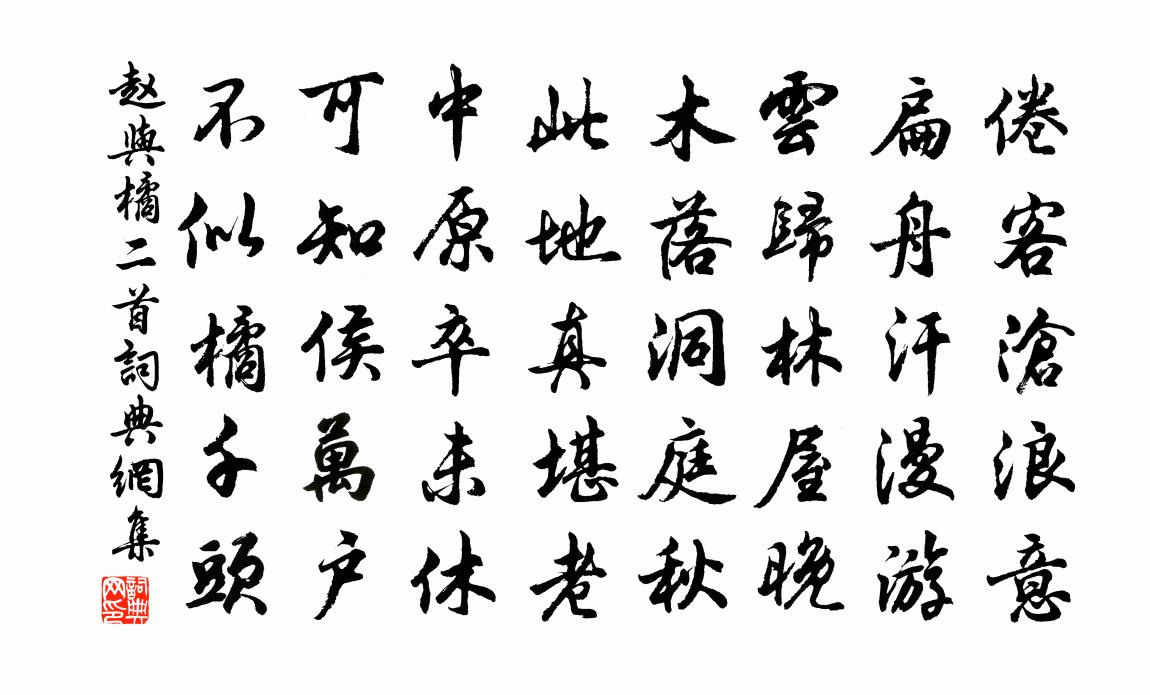 倦客滄浪意
扁舟汗漫游
雲歸林屋晚
木落洞庭秋
此地真堪老
中原卒未休
可知侯萬户
不似橘千頭
赵與橘二首詞典網集
詞典網印